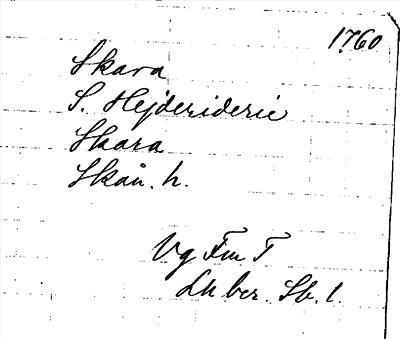 1760
Skara
S. Hejderiderie
Skara
Skån. h.
Vg Fm T
Ln ber. Sb. 1.